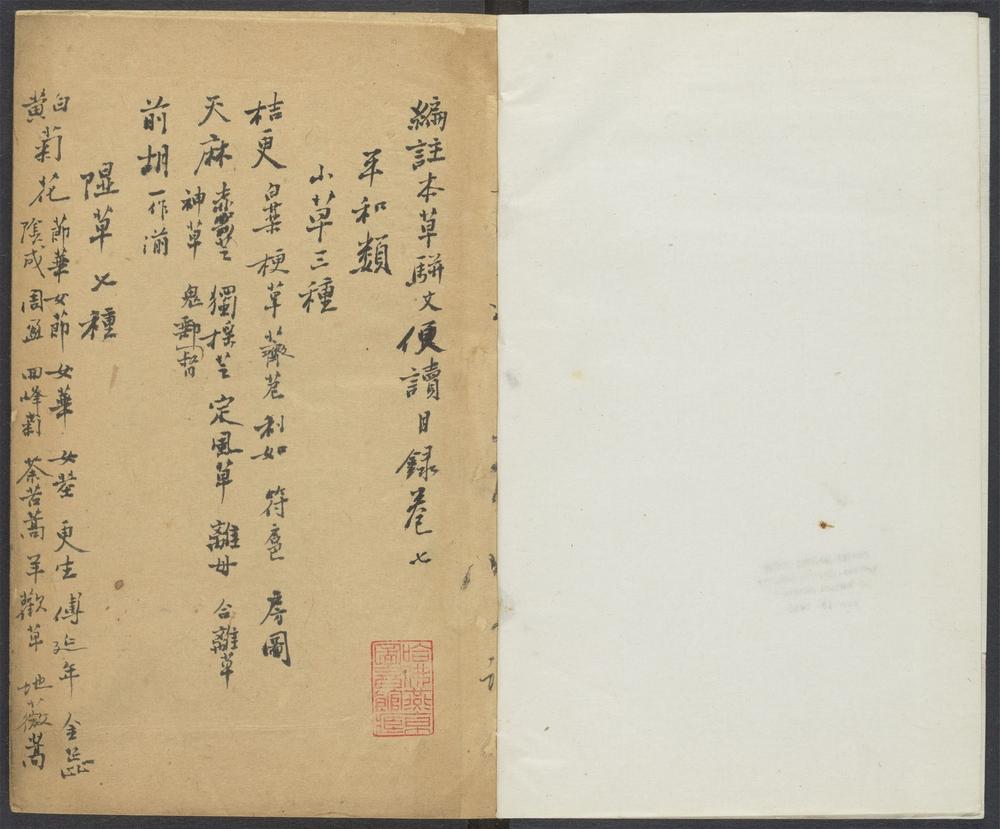 編註本草駢文便讀目録卷七
平和類
小草三種
桔更 白藥 梗草 薺苨 利如 符扈 房圖
天麻 赤箭芝 獨搖芝 定風草 離母 合離草
神草 鬼督郵
前胡 一作湔
隰草七種
白菊花 節華 女節 女華 女莖 更生 傅延年 金蕊
黄 陰成 周盈 回峰菊 茶苦蒿 羊歡草 地薇蒿
哈佛燕京圖書館